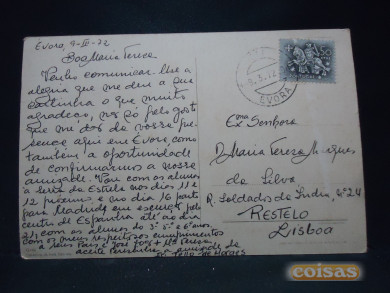 Evora, 9-III-72
Boa Maria Teresa
Venho comunicar-lhe a
alegria que me deu a sua
cartinha o que muito
agradeço, não só pelo gosto
que me dá da vossa pre-
sença aqui em Évora, como
também a oportunidade
de confirmarmos a nossa
amizade. Vou com os alunos
à Serra da Estrela nos dias 11 e
12 próximos e no dia 16 parto
para Madrid em excursão pelo
centro de Espanha até ao dia
21, com os alunos do 3º 5º e 6º anos.
com os meus respeitosos cumprimentos
a seus Pais e José João + Mª Teresa
aceite a amizade da
9.3.72
EVORA
Exma Senhora
D. Maria Teresa
da Silva
R. Soldados da Índia, nº 24
RESTELO
LISBOA
coisas